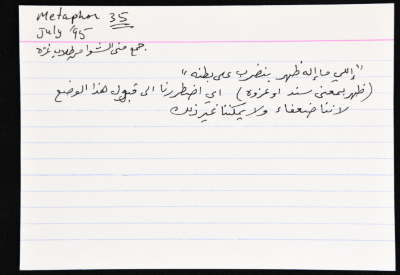 Metaphor 35
July '95
جمع منى الشوا من طلاب غزة
"إللي ما إله ظهر بنضرب على بطنه"
(ظهر بمعنى سند او عزوة) اي اضطررنا الى قبول هذا الوضع
لاننا ضعفاء ولا يمكننا غير ذلك